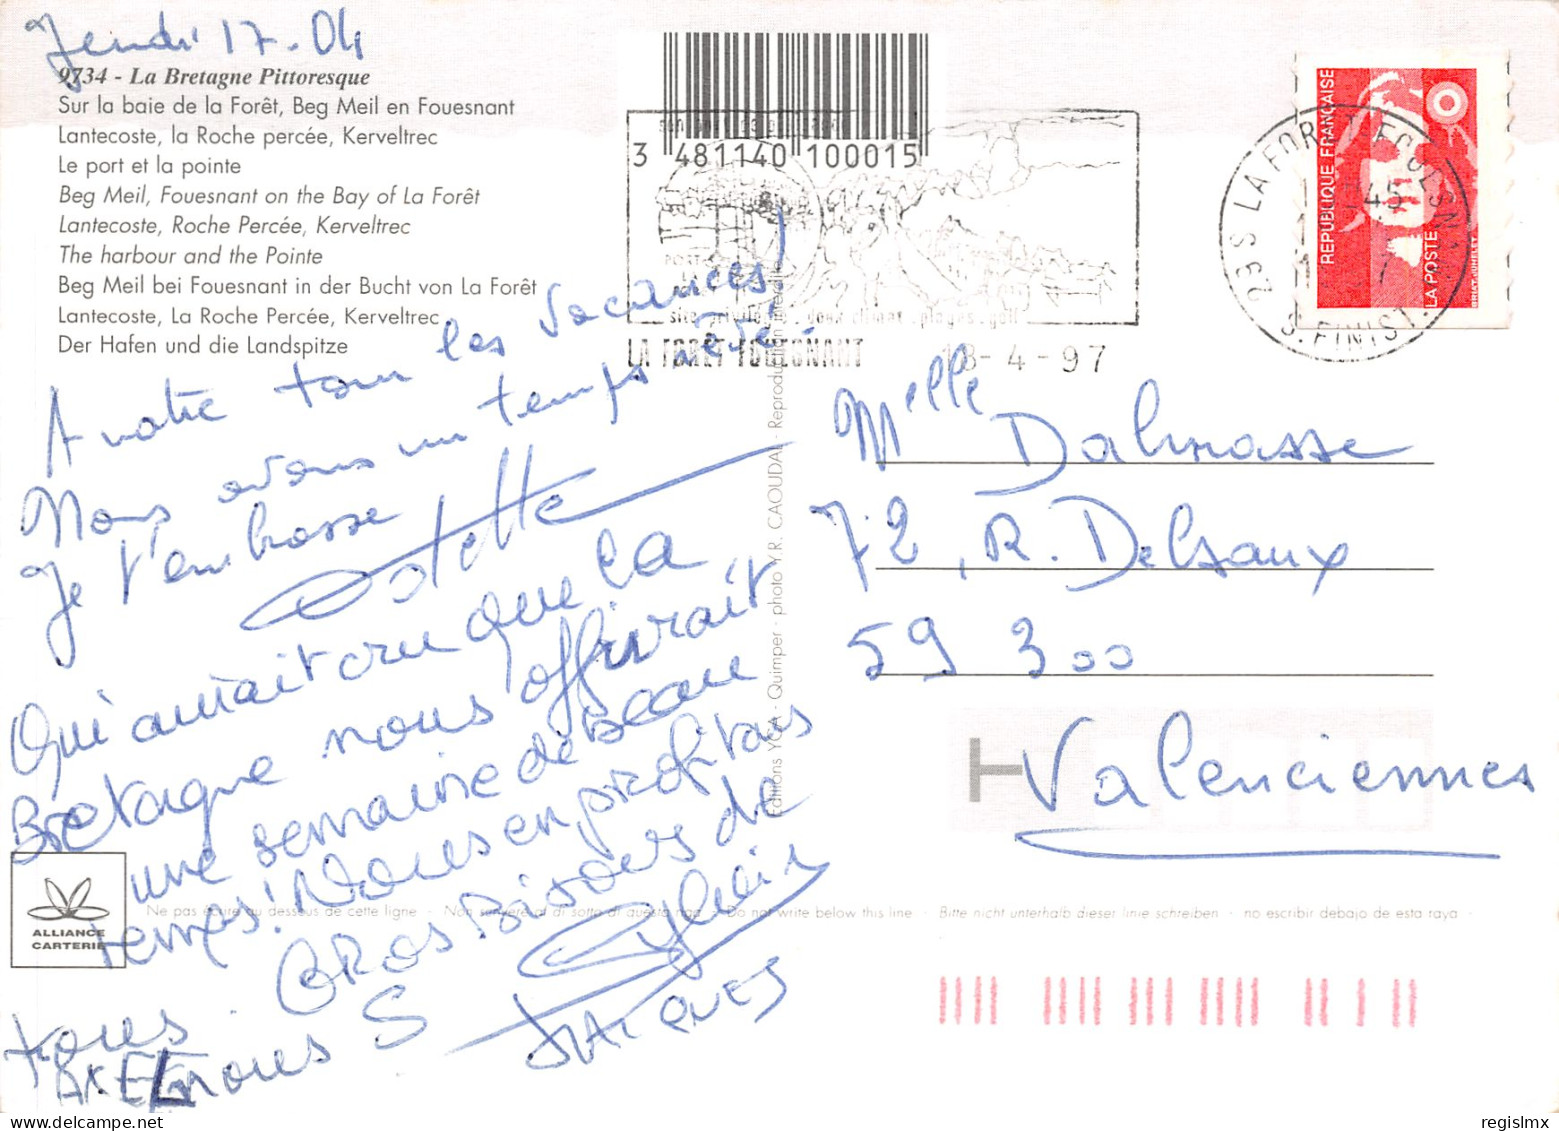 Jeudi 17-04
9734 - La Bretagne Pittoresque
Sur la baie de la Forêt, Beg Meil en Fouesnant
Lantecoste, la Roche percée, Kerveltrec
Le port et la pointe
Beg Meil, Fouesnant on the Bay of La Forêt
Lantecoste, Roche Percée, Kerveltrec
The harbour and the Pointe
Beg Meil bei Fouesnant in der Bucht von La Forêt
Lantecoste, La Roche Percée, Kerveltrec
Der Hafen und die Landspitze
A votre tour les vacances!
Nous avons un temps rêvé.
Je t'embrasse
Odette
Qui aurait cru que la
Bretagne nous offrirait
une semaine de beau
temps! Nous en profitons
tous. GROS BISOUS de
nous
Sylvain
JACQUES
ALLIANCE
CARTERIE
Ne pas écrire au dessous de cette ligne · Non scrivere al di sotto di questa riga · Do not write below this line · Bitte nicht unterhalb dieser linie schreiben · no escribir debajo de esta raya ·
Editions YCA - Quimper - photo Y.R. CAOUDAL - Reproduction interdite
3 481140 100015
site privilégié. doux climat. plages. golf
LA FORÊT FOUESNANT
18-4-97
29S LA FORET FOUESNANT
S. FINIST.
REPUBLIQUE FRANÇAISE
LA POSTE
Melle Dalmasse
72, R. Delsaux
59 300
Valenciennes
regislmx